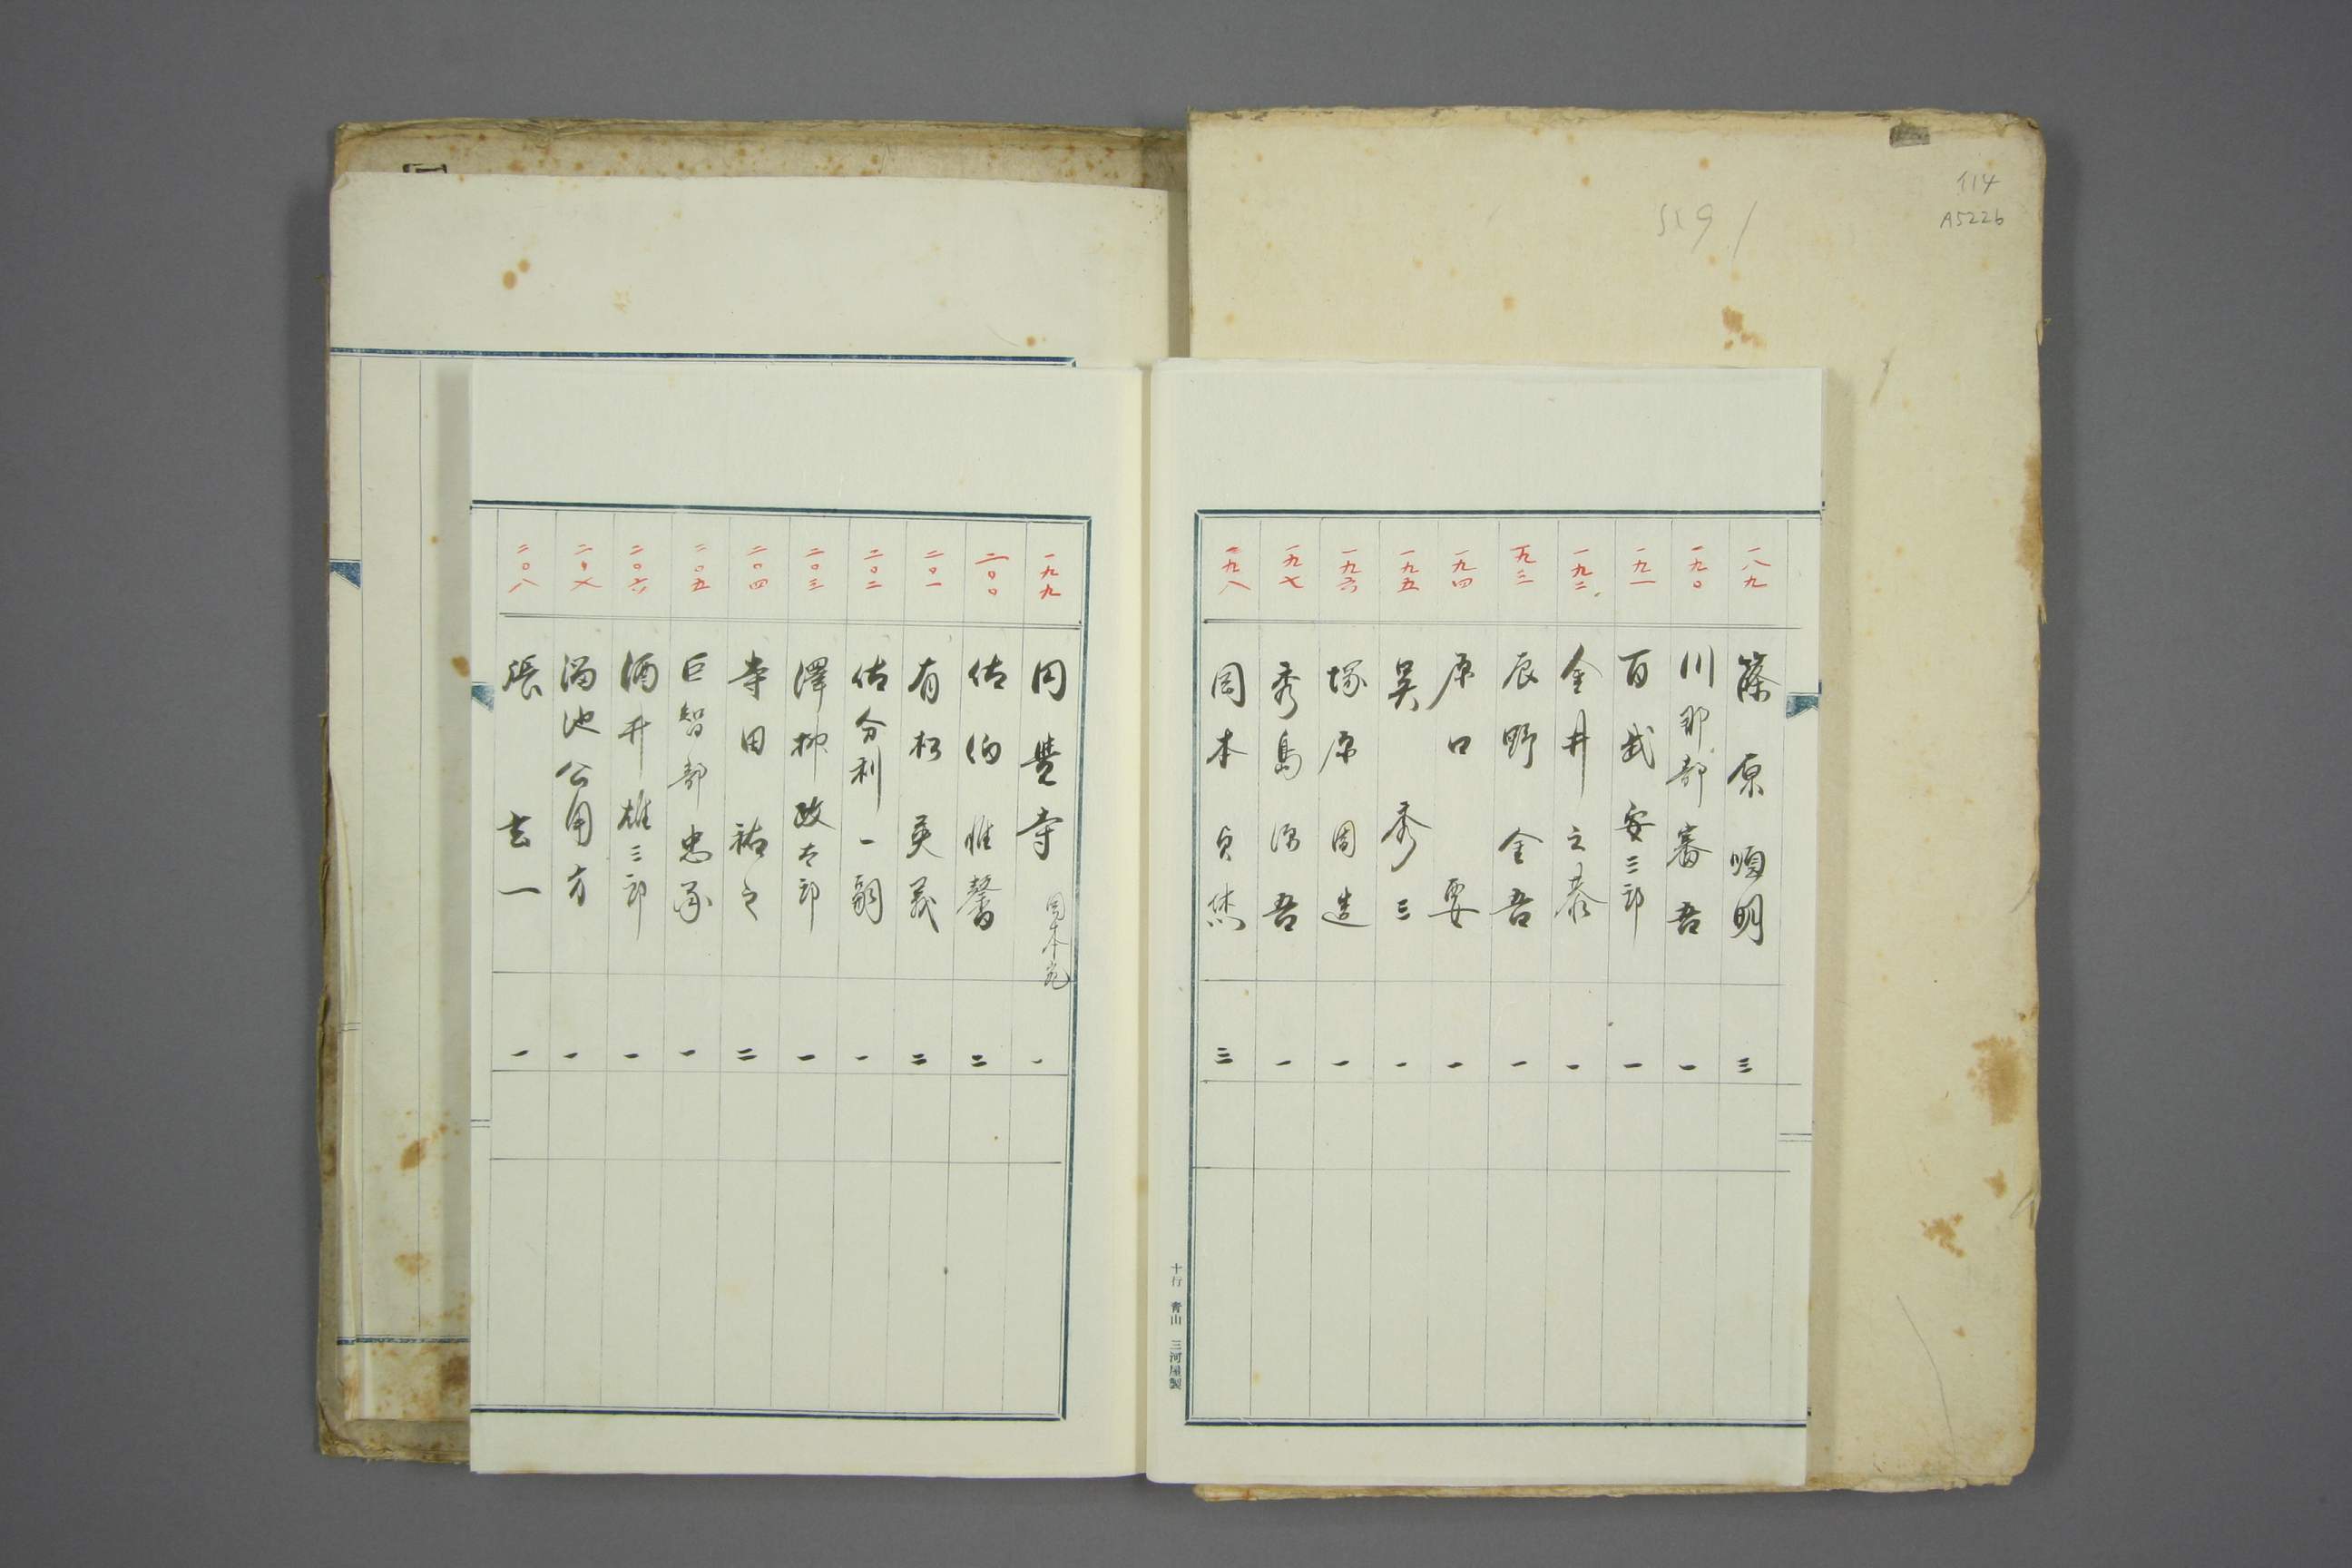 114
A5226
一八九 篠原順明 三
一九〇 川那部審吾 一
一九一 百武安三郎 一
一九二 金井之恭 一
一九三 辰野金吾 一
一九四 原口要 一
一九五 吴秀三 一
一九六 塚原周造 一
一九七 秀島 吾 一
一九八 岡本貞烋 三
十行 青山 三河屋製
一九九 円豊寺 岡本宛 一
二〇〇 佐伯惟馨 二
二〇一 有松英義 二
二〇二 佐分利一嗣 一
二〇三 澤柳政太郎 一
二〇四 寺田祐之 二
二〇五 巨智部忠承 一
二〇六 酒井雄三郎 一
二〇七 菊池 方 一
二〇八 張 一 一